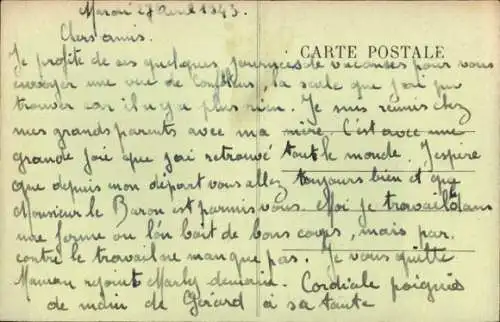 Mardi 27 avril 1943.
Chers amis.
CARTE POSTALE
Je profite de ses quelques journées de vacances pour vous
envoyer une vue de Conflans, la seule que j'ai pu
trouver car il n'y a plus rien. Je suis réunis chez
mes grands parents avec ma mère. C'est avec une
grande joie que j'ai retrouvé tout le monde. J'espère
que depuis mon départ vous allez toujours bien et que
Monsieur le Baron est parmis vous. Moi je travaille dans
une ferme ou l'on boit de bons coups, mais par
contre le travail ne manque pas. Je vous quitte
Maman rejoint Marly demain. Cordiale poignée
de main de Gérard à sa tante